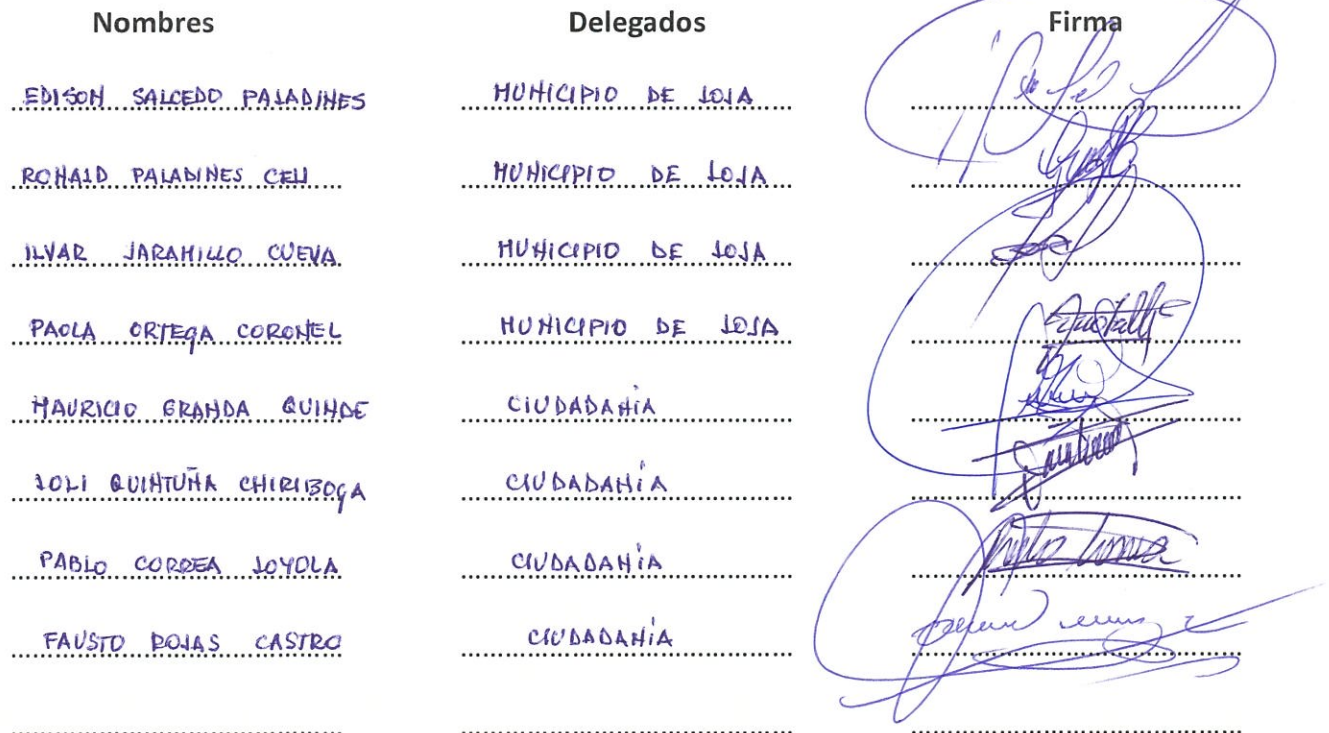 Nombres Delegados Firma
EDISON SALCEDO PALADINES MUNICIPIO DE LOJA
RONALD PALADINES CELI MUNICIPIO DE LOJA
ILVAR JARAMILLO CUEVA MUNICIPIO DE LOJA
PAOLA ORTEGA CORONEL MUNICIPIO DE LOJA
MAURICIO GRANDA QUINDE CIUDADANÍA
LOLI QUINTUÑA CHIRIBOGA CIUDADANÍA
PABLO CORREA LOYOLA CIUDADANÍA
FAUSTO ROJAS CASTRO CIUDADANÍA